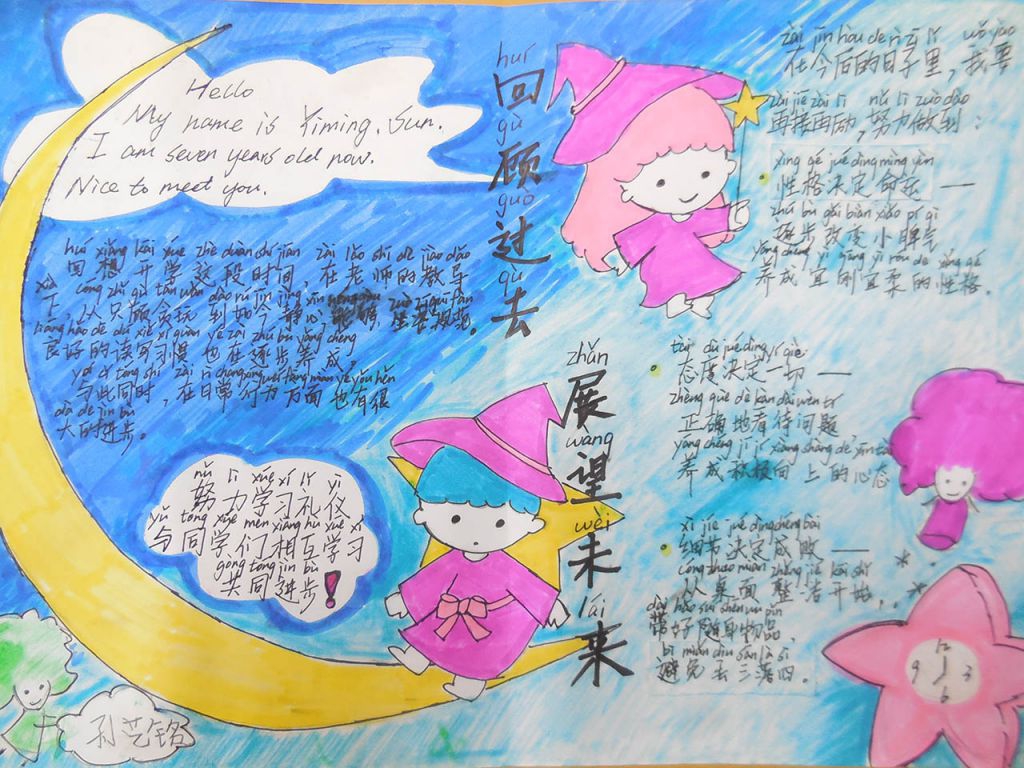 Hello
My name is Yiming. Sun.
I am seven years old now.
Nice to meet you.
huí gù guò qù
回顾过去
huí xiǎng kāi xué zhè duàn shí jiān zài lǎo shī de jiào dǎo
回想开学这段时间,在老师的教导
xià cóng zhǐ gù tān wán dào rú jīn jìng xīn
下,从只顾贪玩到如今静心
liáng hǎo de dú xiě xí guàn yě zài zhú bù yǎng chéng
良好的读写习惯也在逐步养成。
yǔ cǐ tóng shí zài rì cháng xíng wéi fāng miàn yě yǒu hěn
与此同时,在日常行为方面也有很
dà de jìn bù
大的进步。
nǔ lì xué xí lǐ yí
努力学习礼仪
yǔ tóng xué men xiāng hù xué xí
与同学们相互学习
gòng tóng jìn bù
共同进步!
孙艺铭
zhǎn wàng wèi lái
展望未来
zài jīn hòu de rì zi lǐ wǒ yào
在今后的日子里,我要
zài jiē zài lì nǔ lì zuò dào
再接再励,努力做到:
xìng gé jué dìng mìng yùn
性格决定命运——
zhú bù gǎi biàn xiǎo pí qì
逐步改变小脾气,
yǎng chéng yí gāng yí róu de xìng gé
养成宜刚宜柔的性格.
tài dù jué dìng yí qiè
态度决定一切——
zhèng què de kàn dài wèn tí
正确地看待问题
yǎng chéng jī jí xiàng shàng de xīn tài
养成积极向上的心态
xì jié jué dìng chéng bài
细节决定成败——
cóng zhuō miàn zhěng jié kāi shǐ
从桌面整洁开始,
dài hǎo suí shēn wù pǐn
带好随身物品,
bì miǎn diū sān là sì
避免丢三落四.
12
9 3
6